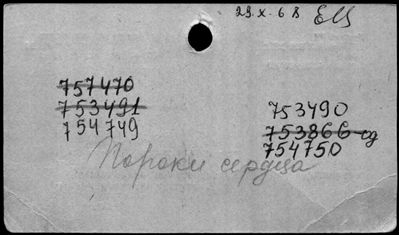 29.X.68
757470
753491
754749
753490
753866
754750
Пороки сердца